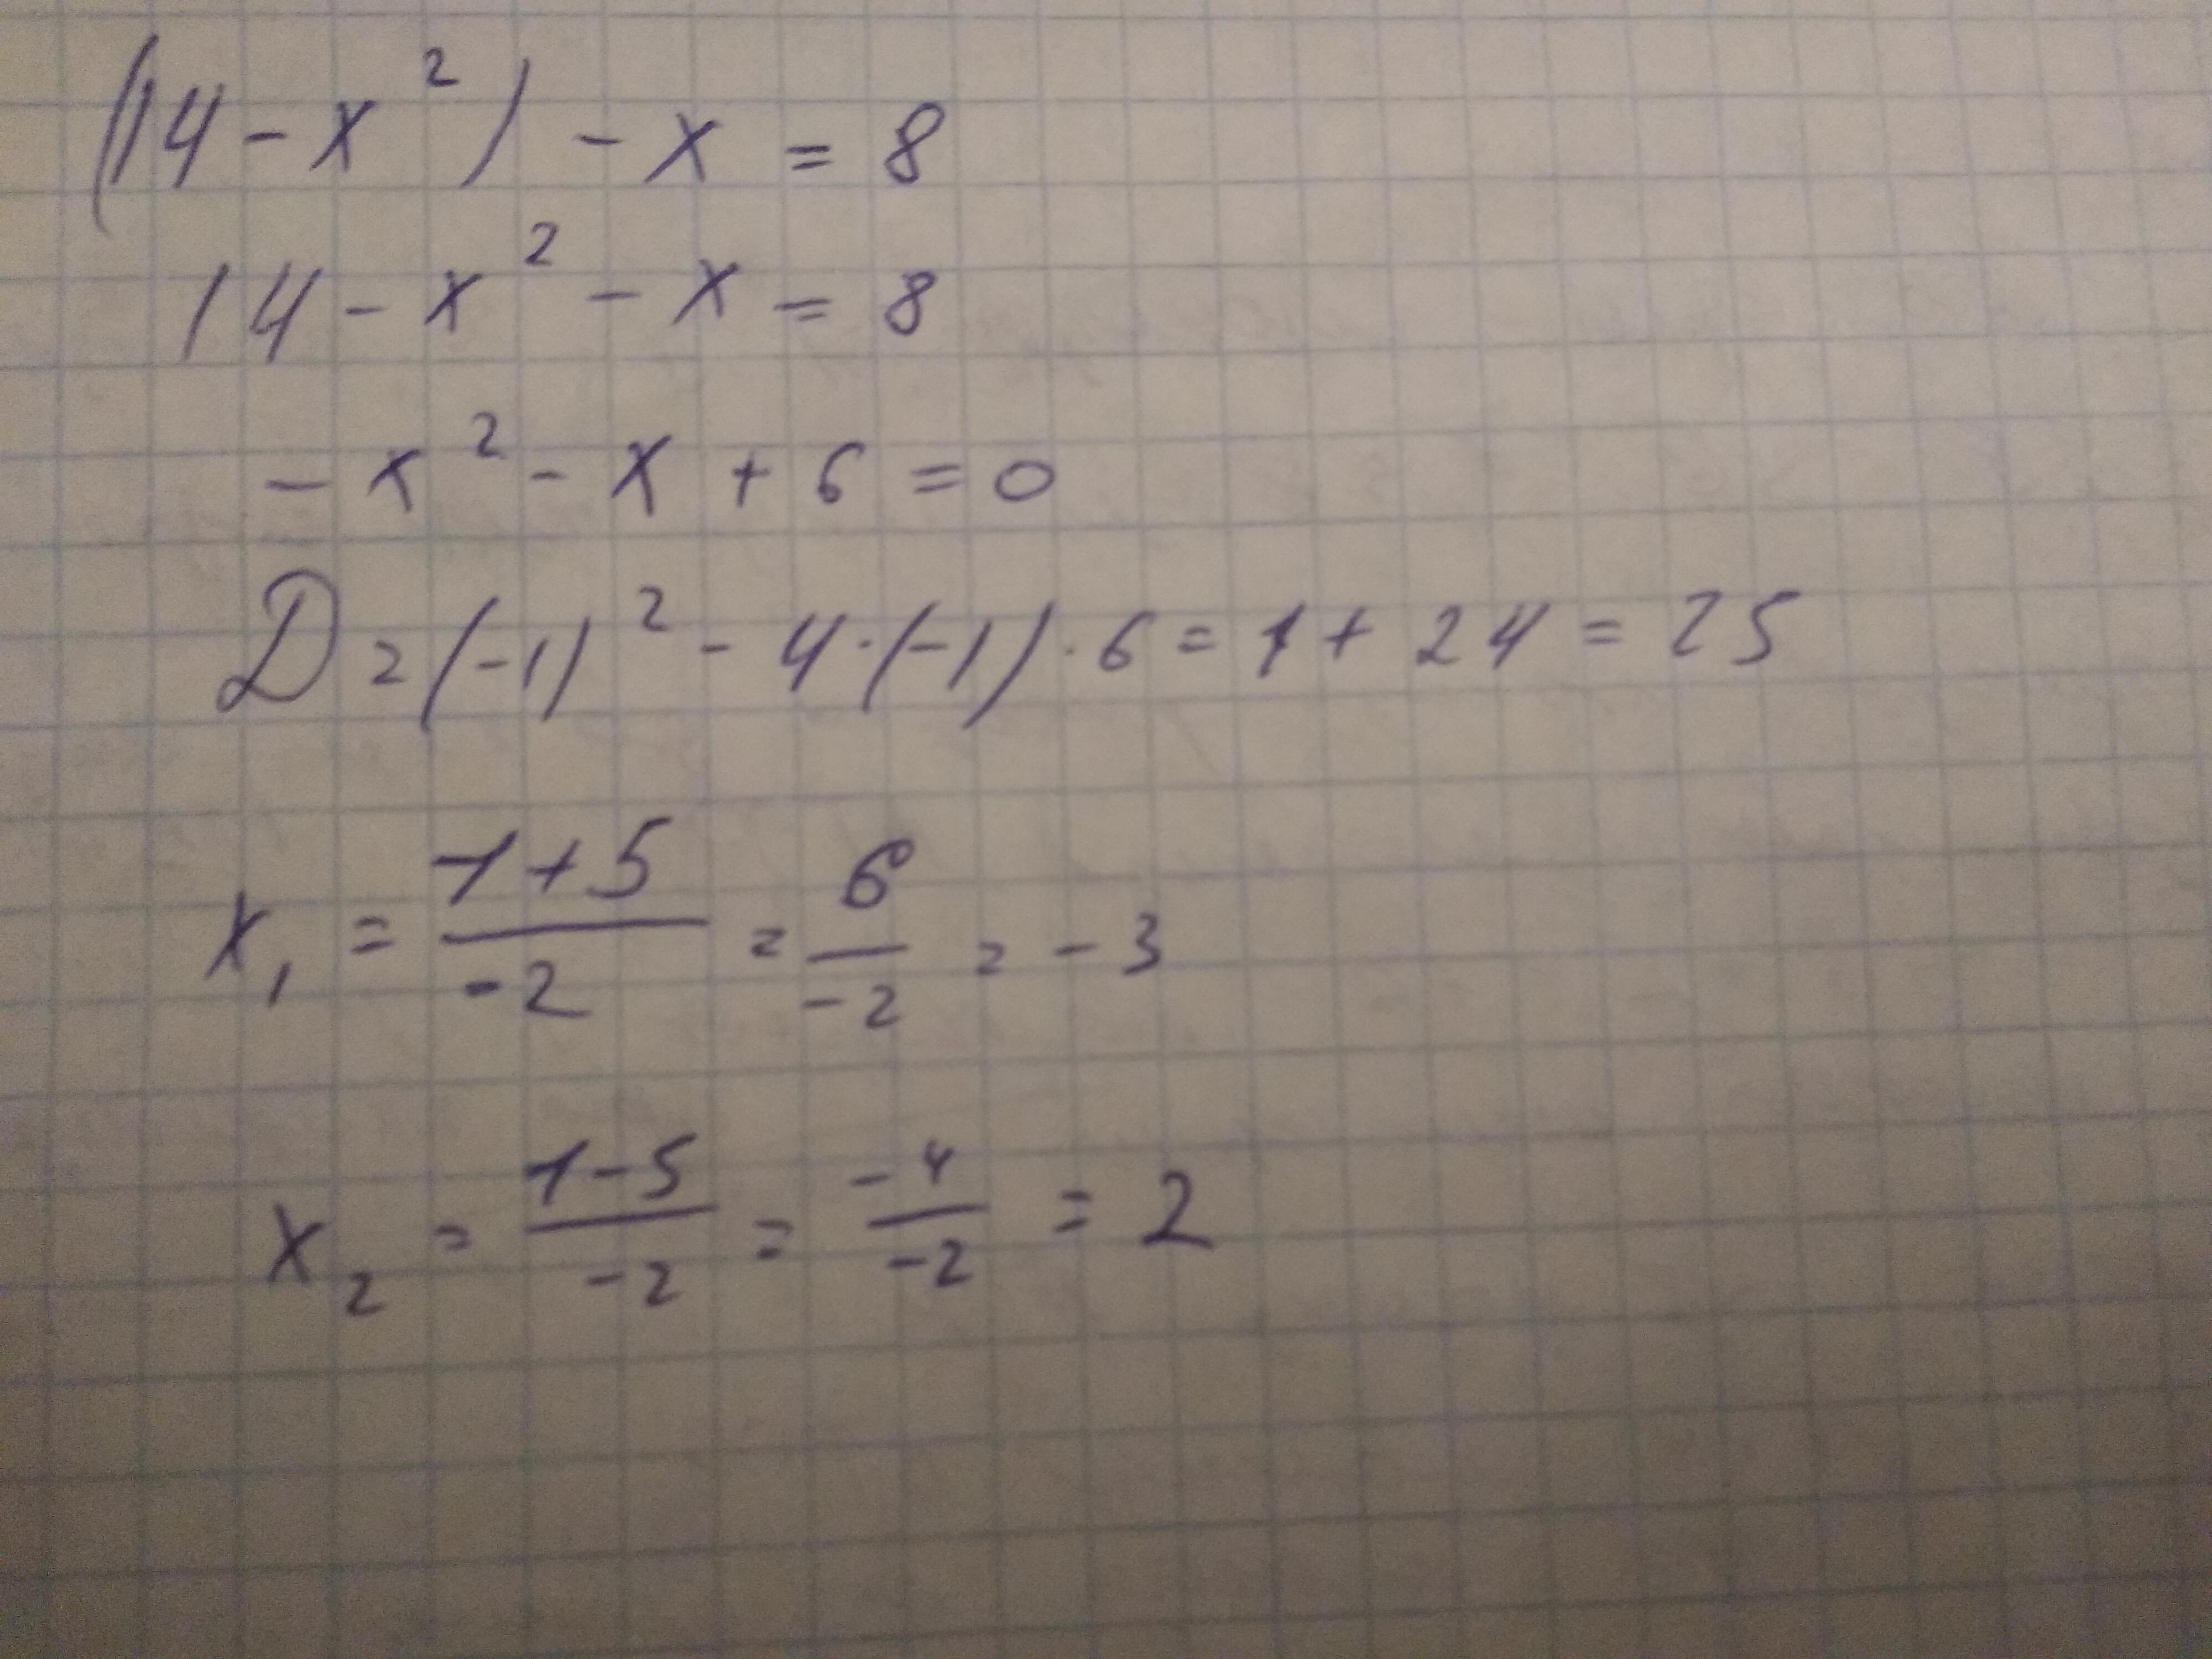 (14 - x²) - x = 8
14 - x² - x = 8
- x² - x + 6 = 0
D = (-1)² - 4·(-1)·6 = 1 + 24 = 25
x₁ = 1+5/-2 = 6/-2 = -3
x₂ = 1-5/-2 = -4/-2 = 2